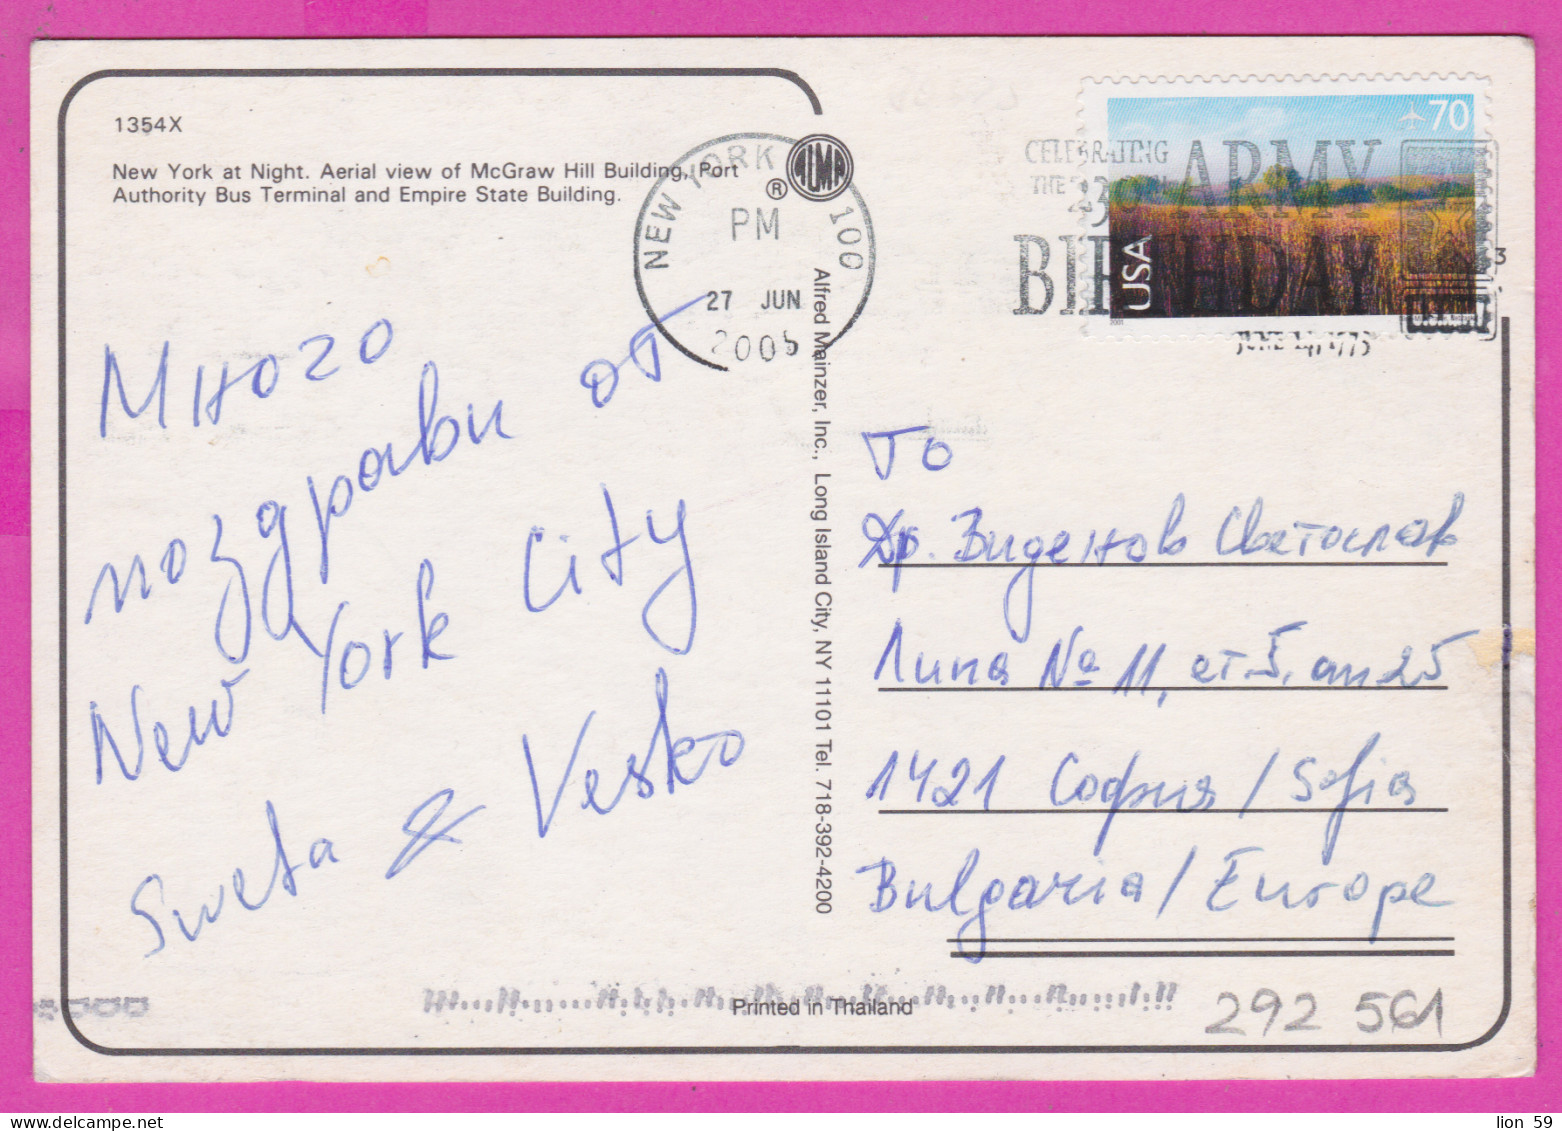 1354X
New York at Night. Aerial view of McGraw Hill Building, Port
Authority Bus Terminal and Empire State Building.
ALMA
®
NEW YORK 100
PM
27 JUN
2005
CELEBRATING
THE
ARMY
BIRTHDAY
JUNE 14, 1775
70
USA
2001
3
Много
поздрави от
New York City
Sweta & Vesko
Alfred Mainzer, Inc., Long Island City, NY 11101 Tel. 718-392-4200
To
Др. Виденов Светослав
Липа № 11, ет. 5. ап 25
1421 София / Sofia
Bulgaria / Europe
Printed in Thailand
292 561
lion 59